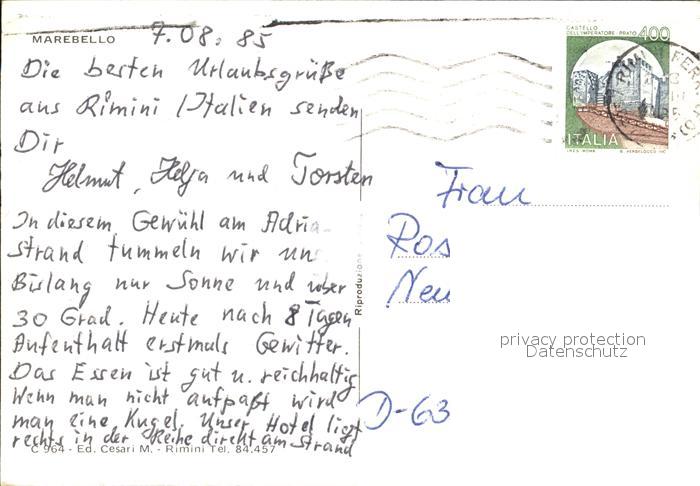 MAREBELLO
7.08.85
Die besten Urlaubsgrüße
aus Rimini / Italien senden
Dir
Helmut, Helga und Torsten
In diesem Gewühl am Adria-
strand tummeln wir uns
Bislang nur Sonne und über
30 Grad. Heute nach 8 Tagen
Aufenthalt erstmals Gewitter.
Das Essen ist gut u. reichhaltig
Wenn man nicht aufpaßt wird
man eine Kugel. Unser Hotel liegt
rechts in der Reihe direkt am Strand
C 964 - Ed. Cesari M. - Rimini Tel. 84.457
Riproduzione
CASTELLO
DELL'IMPERATORE PRATO
400
ITALIA
Frau
Ros
Neu
D-63
privacy protection
Datenschutz